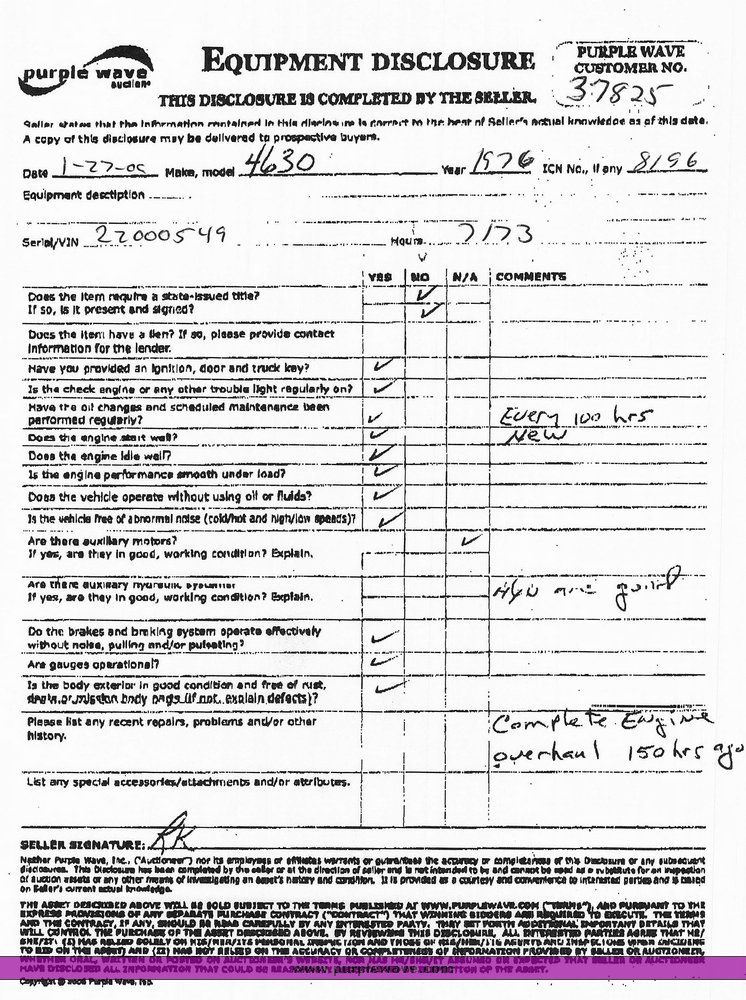 purple wave
auction
EQUIPMENT DISCLOSURE
PURPLE WAVE
CUSTOMER NO.
37825
THIS DISCLOSURE IS COMPLETED BY THE SELLER.
Seller states that the information contained in this disclosure is correct to the best of Seller's actual knowledge as of this date.
A copy of this disclosure may be delivered to prospective buyers.
Date 1-27-09 Make, model 4630 Year 1976 ICN No., if any 8196
Equipment desctiption
Serial/VIN 22000549 Hours 7173
YES NO N/A COMMENTS
Does the item require a state-issued title? ✓
If so, is it present and signed? ✓
Does the item have a lien? If so, please provide contact
information for the lender.
Have you provided an ignition, door and truck key? ✓
Is the check engine or any other trouble light regularly on? ✓
Have the oil changes and scheduled maintenance been
performed regularly? ✓ Every 100 hrs
Does the engine start well? ✓ New
Does the engine idle well? ✓
Is the engine performance smooth under load? ✓
Does the vehicle operate without using oil or fluids? ✓
Is the vehicle free of abnormal noise (cold/hot and high/low speeds)? ✓
Are there auxiliary motors? ✓
If yes, are they in good, working condition? Explain.
Are there auxiliary hydraulic systems?
If yes, are they in good, working condition? Explain.
Do the brakes and braking system operate effectively
without noise, pulling and/or pulsating? ✓
Are gauges operational? ✓
Is the body exterior in good condition and free of rust,
dents or mission body parts (if not, explain defects)? ✓
Please list any recent repairs, problems and/or other
history.
Complete Engine
overhaul 150 hrs ago
List any special accessories/attachments and/or attributes.
SELLER SIGNATURE: RK
Neither Purple Wave, Inc., ("Auctioneer") nor its employees or affiliates warrants or guarantees the accuracy or completeness of this Disclosure or any subsequent
disclosures. This Disclosure has been completed by the seller or at the direction of seller and is not intended to be and cannot be used as a substitute for an inspection
of auction assets or any other means of investigating an asset's history and condition. It is provided as a courtesy and convenience to interested parties and is based
on Seller's current actual knowledge.
THE ASSET DESCRIBED ABOVE WILL BE SOLD SUBJECT TO THE TERMS PUBLISHED AT WWW.PURPLEWAVE.COM ("TERMS"), AND PURSUANT TO THE
EXPRESS PROVISIONS OF ANY SEPARATE PURCHASE CONTRACT ("CONTRACT") THAT WINNING BIDDERS ARE REQUIRED TO EXECUTE. THE TERMS
AND THE CONTRACT, IF ANY, SHOULD BE READ CAREFULLY BY ANY INTERESTED PARTY. THEY SET FORTH ADDITIONAL IMPORTANT DETAILS THAT
WILL CONTROL THE PURCHASE OF THE ASSET DESCRIBED ABOVE. BY REVIEWING THIS DISCLOSURE, ALL INTERESTED PARTIES AGREE THAT HE/
SHE/IT: (1) HAS RELIED SOLELY ON HIS/HER/ITS PERSONAL INSPECTION AND THOSE OF HIS/HER/ITS AGENTS AND INSPECTIONS WHEN DECIDING
TO BID ON THE ASSET; AND (2) HAS NOT RELIED ON THE ACCURACY OR COMPLETENESS OF INFORMATION PROVIDED BY SELLER OR AUCTIONEER,
HAVE DISCLOSED ALL INFORMATION THAT COULD BE
www.purplewave.com
OF THE ASSET.
Copyright © 2005 Purple Wave, Inc.